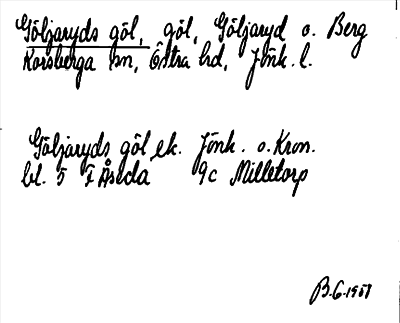 Göljaryds göl, göl, Göljaryd o. Berg
Korsberga sn, Östra hd, Jönk. l.
Göljaryds göl ek. Jönk. o. Kron.
bl. 5 F Åseda 9c Milletorp
B.G. 1957